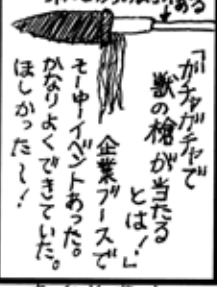 「ガチャガチャで
獣の槍が当たる
とは！」
企業ブースで
そーゆーイベントあった。
かなりよくできていた。
ほしかった〜！